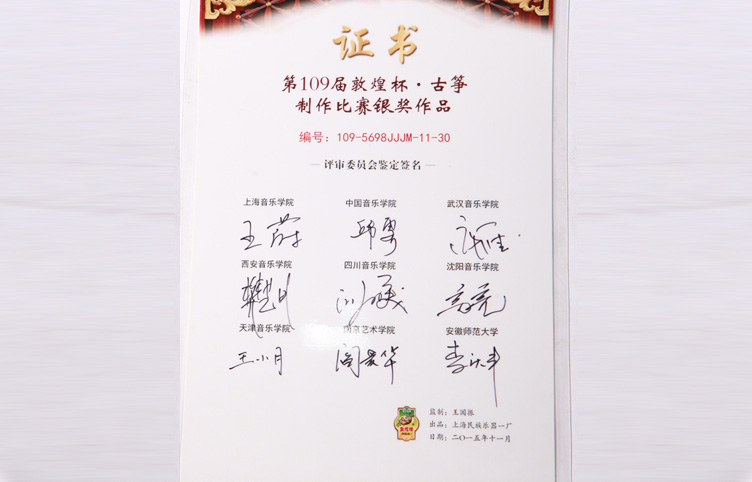 证书
第109届敦煌杯·古筝
制作比赛银奖作品
编号：109-5698JJJM-11-30
评审委员会鉴定签名
上海音乐学院 中国音乐学院 武汉音乐学院
西安音乐学院 四川音乐学院 沈阳音乐学院
天津音乐学院 南京艺术学院 安徽师范大学
王小月
监制：王国振
出品：上海民族乐器一厂
日期：二〇一五年十一月